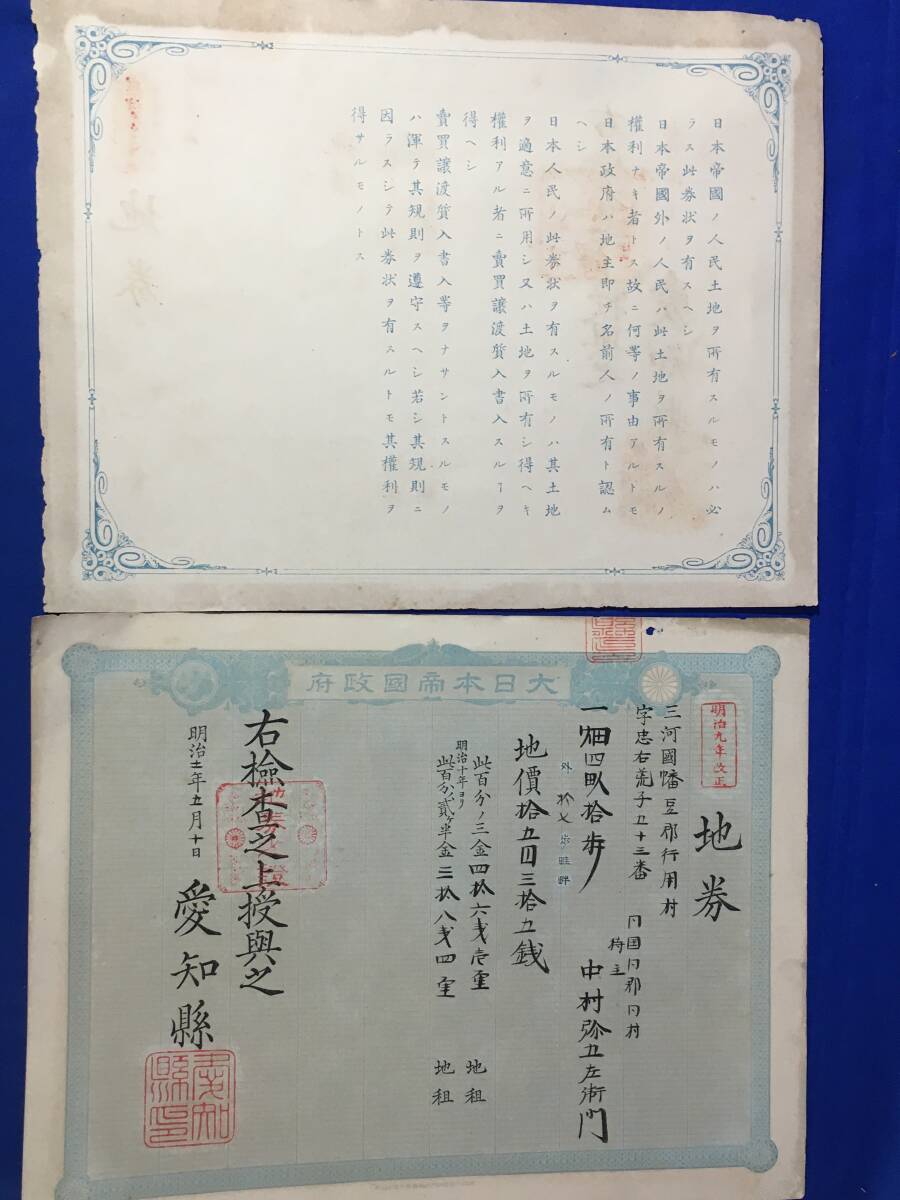 日本帝國ノ人民土地ヲ所有スルモノハ必
ラス此券狀ヲ有スヘシ
日本帝國外ノ人民ハ此土地ヲ所有スルノ
權利ナキ者トス故ニ何等ノ事由アルトモ
日本政府ハ地主即チ名前人ノ所有ト認ム
ヘシ
日本人民ノ此券狀ヲ有スルモノハ其土地
ヲ適意ニ所用シ又ハ土地ヲ所有シ得ヘキ
權利アル者ニ賣買讓渡質入書入スルヿヲ
得ヘシ
賣買讓渡質入書入等ヲナサントスルモノ
ハ渾テ其規則ヲ遵守スヘシ若シ其規則ニ
因ラスシテ此券狀ヲ有スルトモ其權利ヲ
得サルモノトス
大日本帝國政府
明治九年改正
地券
三河國幡豆郡行用村
字忠右荒子五十三番
同国同郡同村
持主 中村弥五左衛門
一畑四畝拾歩
外 拾七歩畦畔
地價拾五円三拾五銭
此百分ノ三金四拾六銭壱厘 地租
明治十年ヨリ
此百分ノ貳ヶ半金三拾八銭四厘 地租
右檢査之上授與之
明治十一年五月十日
愛知縣
愛知縣印